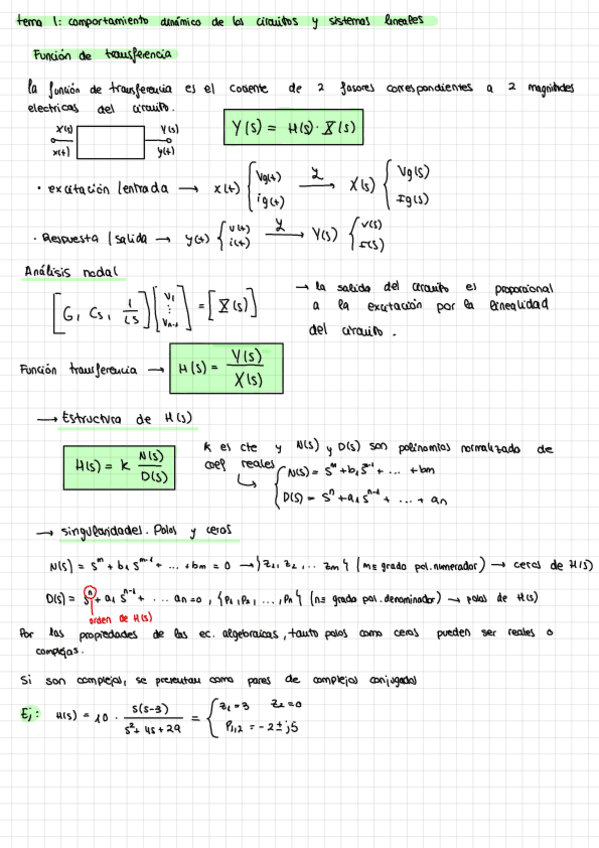 tema 1: comportamiento dinámico de los circuitos y sistemas lineales
Función de transferencia
la función de transferencia es el cociente de 2 fasores correspondientes a 2 magnitudes
electricas del circuito.
X(s) Y(s)
x(t) y(t)
Y(s) = H(s) · X(s)
· excitación / entrada → x(t) { Vg(t) ig(t) ℒ→ X(s) { Vg(s) Ig(s)
· Respuesta / salida → y(t) { v(t) i(t) ℒ→ Y(s) { V(s) I(s)
Análisis nodal
[G, Cs, 1/Ls] [V1 ⋮ Vn-1] = [X(s)]
→ la salida del circuito es proporcional
a la excitación por la linealidad
del circuito.
Función transferencia → H(s) = Y(s)/X(s)
→ Estructura de H(s)
H(s) = K N(s)/D(s)
K es cte y N(s) y D(s) son polinomios normalizado de
coef reales
N(s) = s^m + b1 s^m-1 + ... + bm
D(s) = s^n + a1 s^n-1 + ... + an
→ singularidades. Polos y ceros
N(s) = s^m + b1 s^m-1 + ... + bm = 0 → {z1, z2, ... zm} (m ≡ grado pol. numerador) → ceros de H(s)
D(s) = s^n + a1 s^n-1 + ... an = 0, {P1, P2, ..., Pn} (n ≡ grado pol. denominador) → polos de H(s)
orden de H(s)
Por las propiedades de las ec. algebraicas, tanto polos como ceros pueden ser reales o
complejas.
Si son complejos, se presentan como pares de complejos conjugados
Ej: H(s) = 10 · s(s-3)/(s²+4s+29) = { z1 = 3 z2 = 0
P1,2 = -2 ± j5